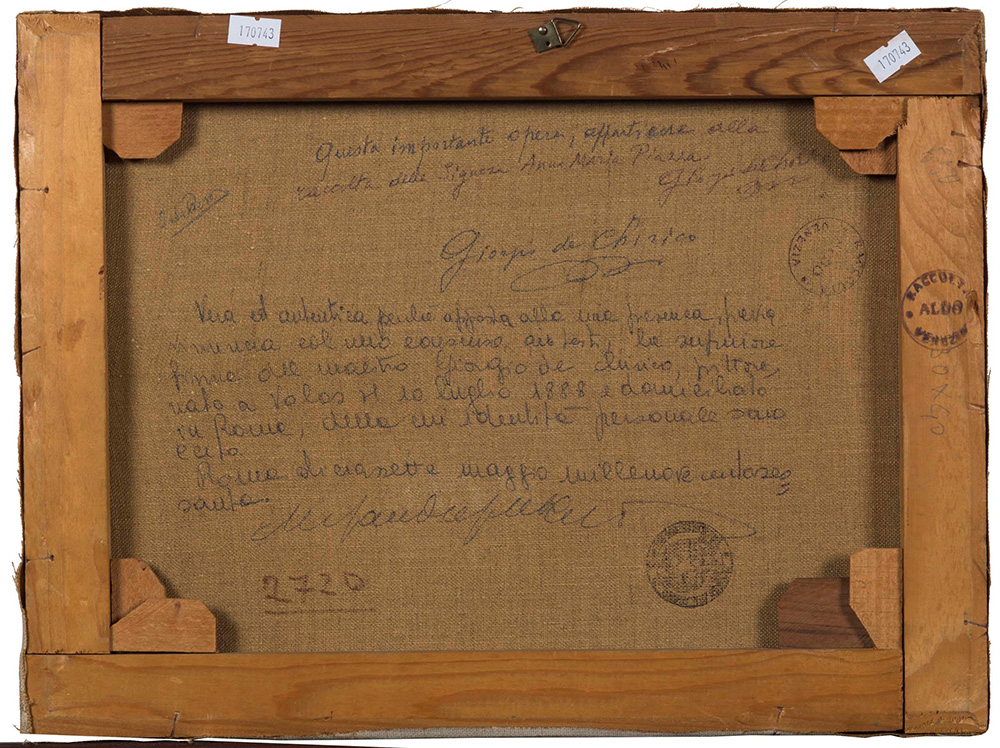 170743
170743
Questa importante opera, appartiene alla
raccolta della Signora Anna Maria Piazza
Giorgio de Chirico
VENEZIA
RACCOLTA
ALDO
Vera ed autentica perchè apposta alla mia presenza, previa
rinuncia col mio consenso ai testi, la superiore
firma del maestro Giorgio de Chirico, pittore,
nato a Volos il 10 luglio 1888 e domiciliato
in Roma, della cui identità personale sono
certo
Roma diciassette maggio millenovecentoses
santa.
2720